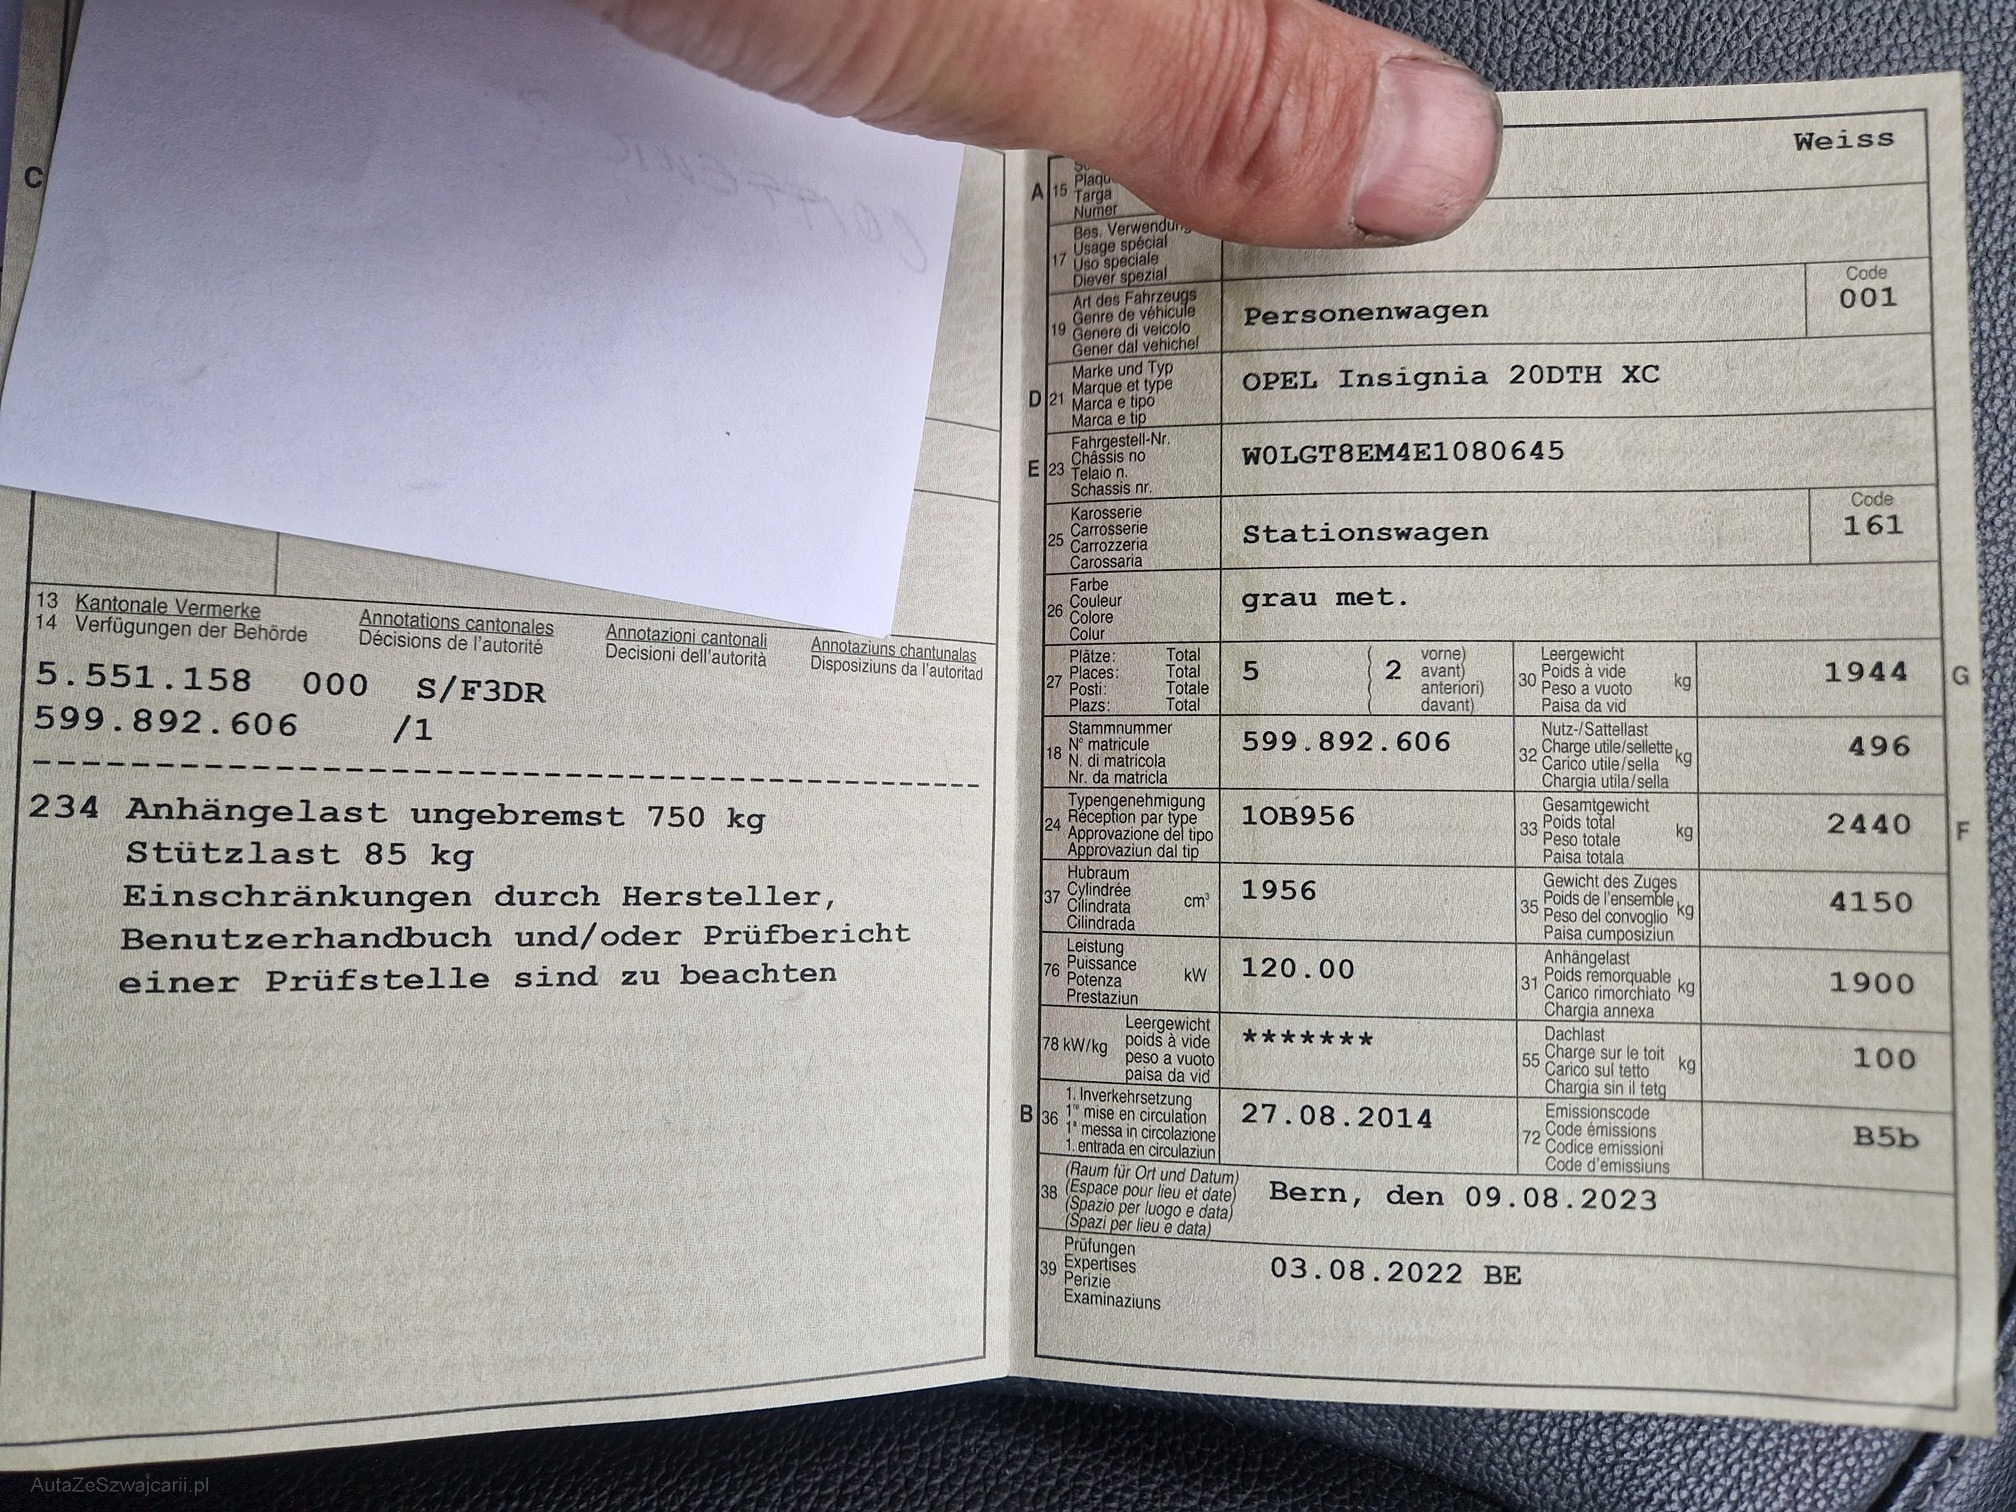 C
13 Kantonale Vermerke Annotations cantonales Annotazioni cantonali Annotaziuns chantunalas
14 Verfügungen der Behörde Décisions de l'autorité Decisioni dell'autorità Disposiziuns da l'autoritad
5.551.158 000 S/F3DR
599.892.606 /1
234 Anhängelast ungebremst 750 kg
Stützlast 85 kg
Einschränkungen durch Hersteller,
Benutzerhandbuch und/oder Prüfbericht
einer Prüfstelle sind zu beachten
Weiss
A 15
Targa
Numer
17
Bes. Verwendung
Usage spécial
Uso speciale
Diever spezial
19
Art des Fahrzeugs
Genre de véhicule
Genere di veicolo
Gener dal vehichel
Personenwagen
Code
001
D 21
Marke und Typ
Marque et type
Marca e tipo
Marca e tip
OPEL Insignia 20DTH XC
E 23
Fahrgestell-Nr.
Châssis no
Telaio n.
Schassis nr.
W0LGT8EM4E1080645
25
Karosserie
Carrosserie
Carrozzeria
Carossaria
Stationswagen
Code
161
26
Farbe
Couleur
Colore
Colur
grau met.
27
Plätze: Total
Places: Total
Posti: Totale
Plazs: Total
5
( 2 vorne)
avant)
anteriori)
davant)
30
Leergewicht
Poids à vide
Peso a vuoto
Paisa da vid
kg
1944
G
18
Stammnummer
N° matricule
N. di matricola
Nr. da matricla
599.892.606
32
Nutz-/Sattellast
Charge utile/sellette
Carico utile/sella
Chargia utila/sella
kg
496
24
Typengenehmigung
Réception par type
Approvazione del tipo
Approvaziun dal tip
1OB956
33
Gesamtgewicht
Poids total
Peso totale
Paisa totala
kg
2440
F
37
Hubraum
Cylindrée
Cilindrata
Cilindrada
cm³
1956
35
Gewicht des Zuges
Poids de l'ensemble
Peso del convoglio
Paisa cumposiziun
kg
4150
76
Leistung
Puissance
Potenza
Prestaziun
kW
120.00
31
Anhängelast
Poids remorquable
Carico rimorchiato
Chargia annexa
kg
1900
78 kW/kg
Leergewicht
poids à vide
peso a vuoto
paisa da vid
*******
55
Dachlast
Charge sur le toit
Carico sul tetto
Chargia sin il tetg
kg
100
B 36
1. Inverkehrsetzung
1re mise en circulation
1a messa in circolazione
1. entrada en circulaziun
27.08.2014
72
Emissionscode
Code émissions
Codice emissioni
Code d'emissiuns
B5b
38
(Raum für Ort und Datum)
(Espace pour lieu et date)
(Spazio per luogo e data)
(Spazi per lieu e data)
Bern, den 09.08.2023
39
Prüfungen
Expertises
Perizie
Examinaziuns
03.08.2022 BE
AutaZeSzwajcarii.pl